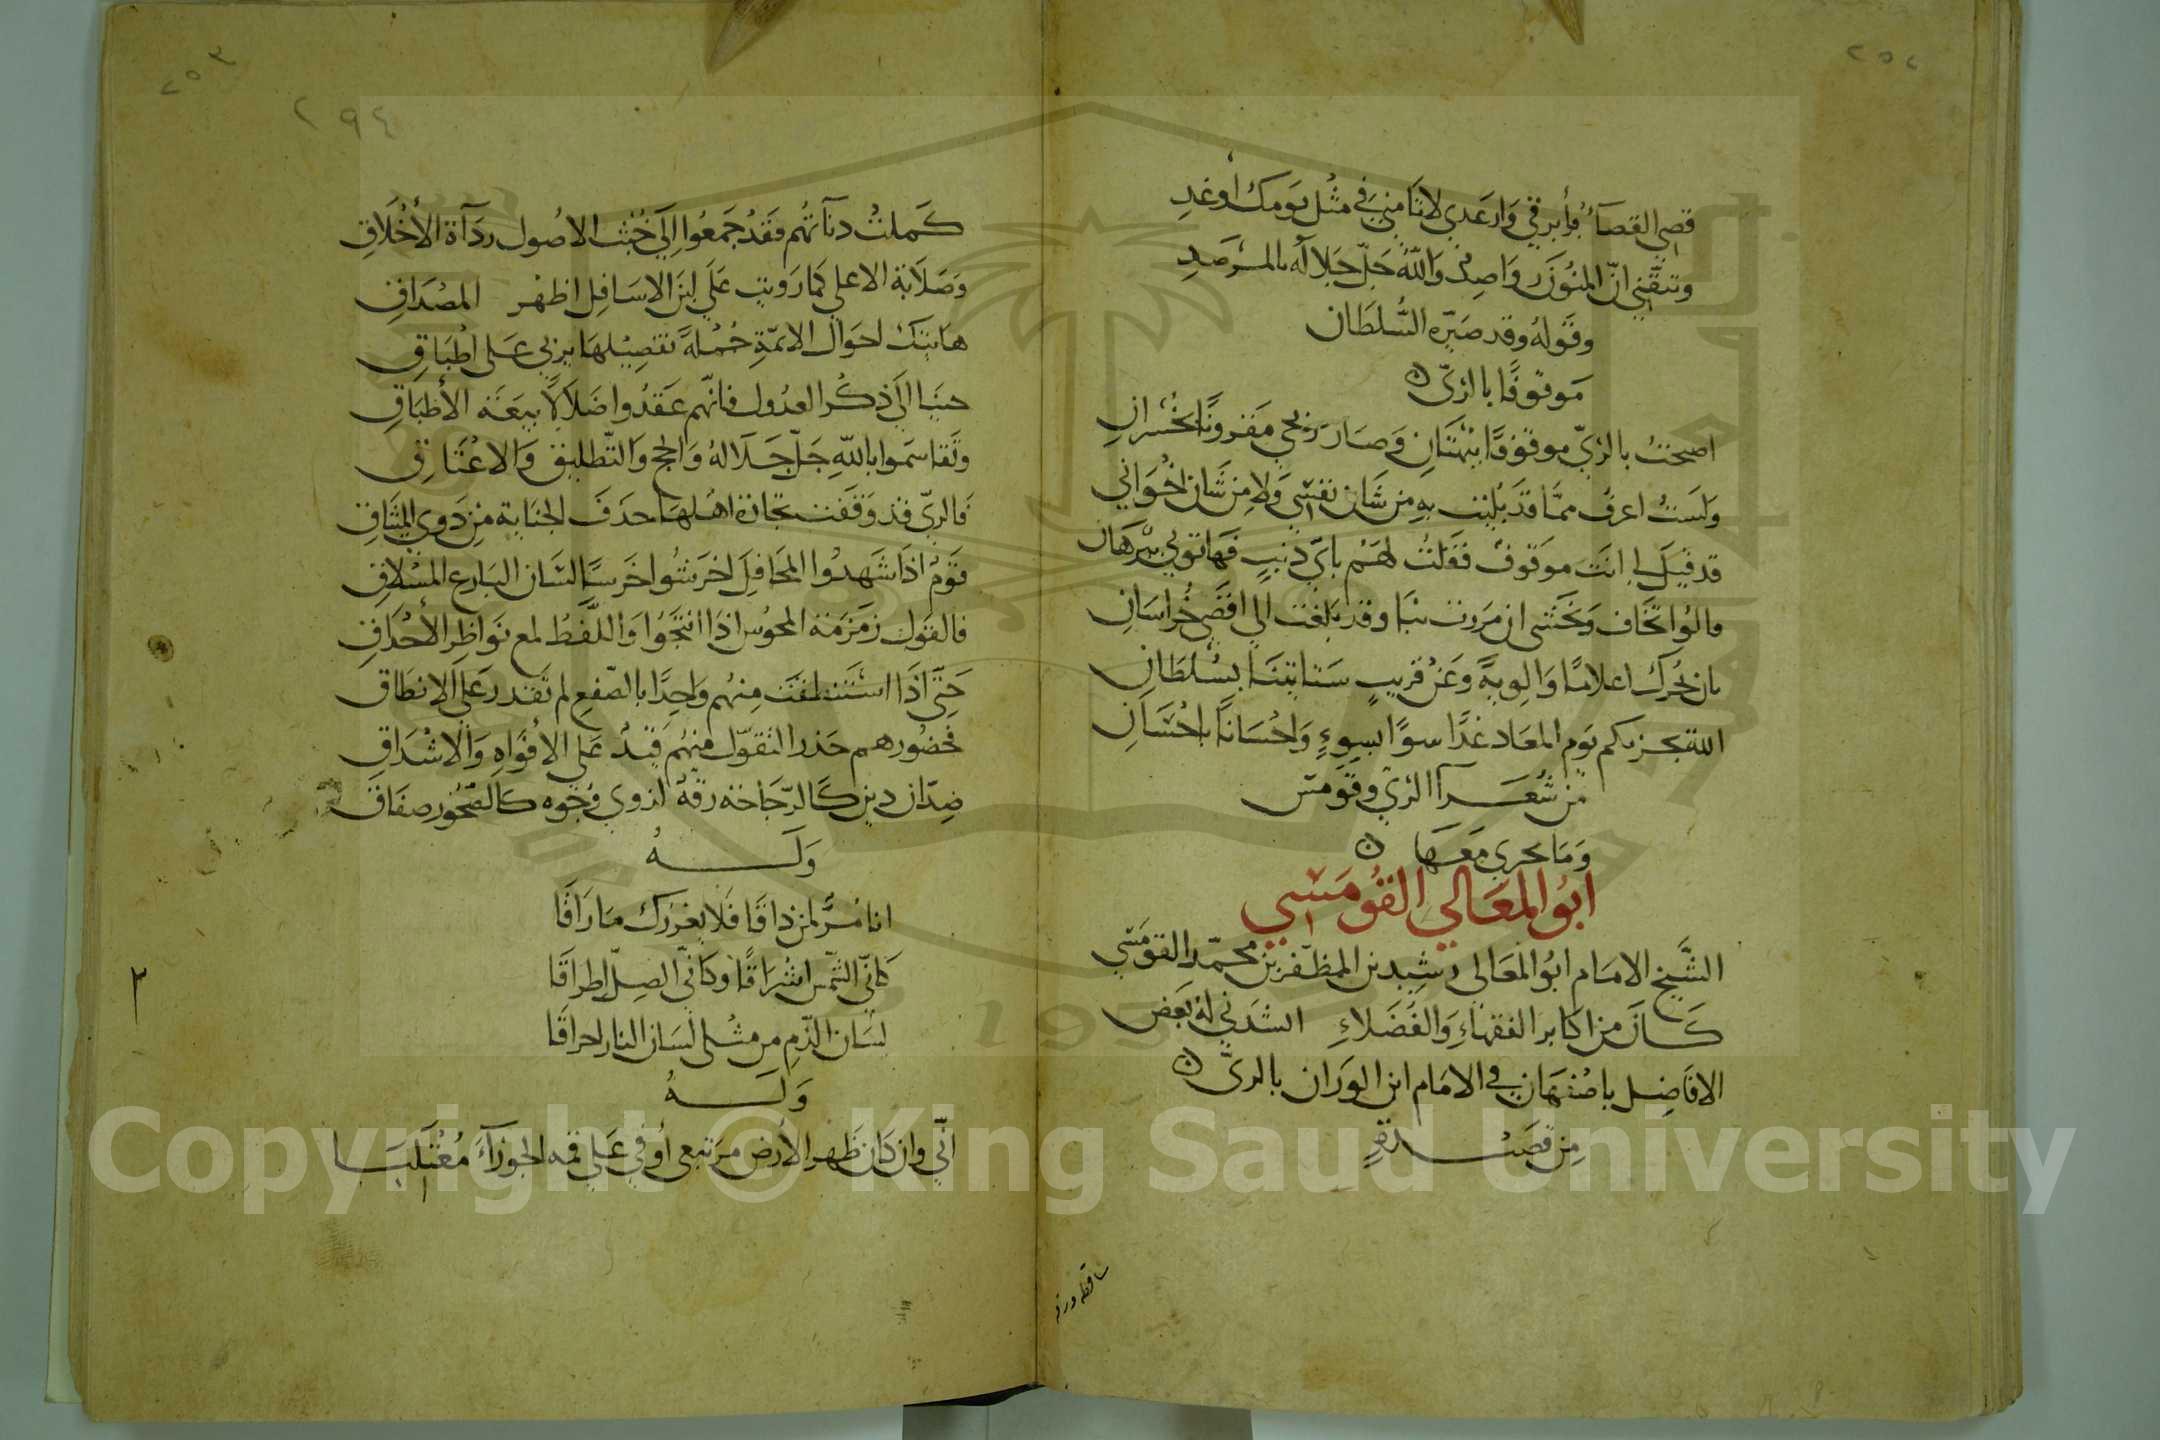 ٢٥٢
قصي القصآء فأبرقي وارعدي لا تأمني في مثل يومك او غدِ
وتيقّني انّ المنُوزَر واصفٌ واللّهُ جَلّ جَلالُه بالمرصدِ
وقولهُ وقد صَيّره السُّلطَان
مَوقوفًا بالرّيّ
اصبحتُ بالريّ موقوفًا ببُهتَانِ وصَارَ ربحي مَقرونًا بخُسرانِ
ولَستُ اعرفُ ممّا قد بُليت بهِ من شَان نفسي ولا مِن شَان اخْوَاني
قد قيل لي انتَ موَقوف فقلتُ لهَم بايّ ذنبٍ فهَاتوا لي ببُرهَان
قالوُا تخَاف ونخشى ان مَروت بنا وقد بَلغت الي اقصَى خُراسَانِ
بان يُحرّك اعلامًا وَالويةً وعَن قريبٍ سَتاتينَا بسُلطَانِ
اللّه يجزيكم يَوم المعَاد غدًا سوءًا بسوءٍ وَاحسَانًا باحسَانِ
من شُعَرآ الريّ وقومس
وَمَا يجري مَعهَا
ابوُ المعَالي القُومَسي
الشَّيخ الامَام ابوُ المعَالى رشيد بن المظفّر بن محمّد القومَسي
كَانَ من اكابر الفقهَاءِ وَالفُضَلاءِ انشدَني لهُ بَعض
الافَاضِل باصْفهَان في الامَام ابن الوَزان بالريّ
مِن قصَيْدةٍ
ساقطه ورقه
٢٥٣
٢٩٤
كَملتْ دنآتهُم فقَدْ جمَعُوا اِلىَ خُبْث الاصُول ردَآةَ الأخْلَاقِ
وَصَلابة الاعلي كمَا رَويت عَلَي لين الاسَافِل اظهْر المصْدَاقِ
هاتيك احوَال الائمّةِ جُمْلةً تفصِيْلهَا يربي عَلى اطْبَاقِ
جئنا الىَ ذكْر العدُول فانّهم عَقَدُوا ضَلَالاً بيعَةَ الأطبَاقِ
وَتقاسَموا باللّهِ جَلّ جَلالهُ وَالحج وَالتّطليق وَالاعْتَاقِ
فالريّ قد وَقفت تجَارة اهْلهَا حذَرَ الجنَاية مِن ذَوي الميثَاقِ
قَومٌ اذَا شَهدُوا المحَافِلَ اخرسُوا خَرسًا لسَان البَارِع المسْلَاقِ
فالقول زمَزمَة المجُوس اذَا انتجَوا وَاللّفظُ لمع نوَاظِر الأحْدَاقِ
حتّى اذَا اسْتَنطقتَ مِنهُم وَاحِدًا بالصّفعِ لم تقدر عَلَى الانطاق
فحُضُورهم حَذر التقوّل مِنهُم قيدٌ عَلي الأفْوَاهِ وَالاشْدَاقِ
ضدّان دين كَالزّجَاجَة رقّةً لذوي وُجوُه كالصّخُور صفَاق
وَلَـــهُ
انا مُرٌّ لمن ذاقَا فَلا يغررك مَا رَاقَا
كاني الشّمس اشْرَاقًا وكَانّي الصِلّ اطراقَا
لسَان الذّمِ مِن مثْلى لسَان النار احراقَا
وَلَـــهُ
انّي وان كَان ظهر الأرض مَرتبعى أوفي عَلي قمه الجوزآءِ مُعْتَليَا
Copyright © King Saud University
1957